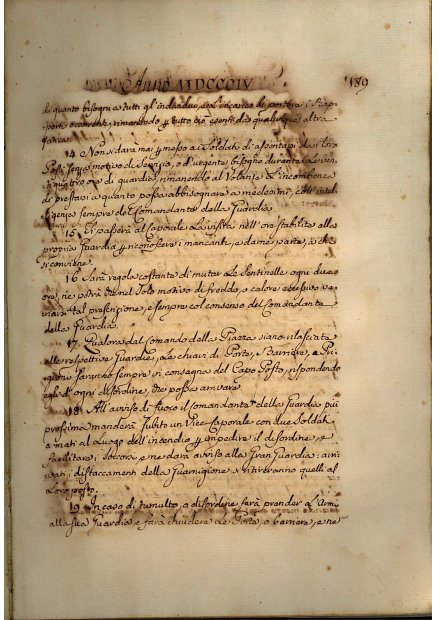 Anno MDCCCIV 189
di quanto bisogna a tutti gl'individui, e l'incarico di portare i Rap-
porti occorrenti, rimanendo per tutto ciò esenti da qualunque altra
fatica.
14. Non si darà mai permesso ai Soldati di apontarsi da i loro
Posti senza motivo di Servizio, o d'urgente bisogno durante le ven-
tiquattro ore di guardia, rimanendo al Volante l'incombenza
di prestarsi a quanto possa abbisognare a medesimi, con intel-
ligenza sempre del Comandante della Guardia.
15. Si passerà al Caporale la visita nell'ora stabilita alla
propria Guardia per riconoscere i mancanti, e darne parte, a chi
si conviene.
16. Sarà regola costante di mutar le Sentinelle ogni due
ore, ne potrà che nel solo motivo di freddo, o calore eccessivo va-
riarsi tal prescrizione, e sempre col consenso del Comandante
della Guardia.
17. Qualora dal Comando della Piazza siano rilasciate
alle rispettive Guardie, o le chiavi di Porte, o Barriere, e Pri-
gioni saranno sempre in consegna del Capo Posto, rispondendo
egli d'ogni disordine, che possa arrivare.
18. All'avviso di fuoco il Comandante della Guardia più
prossimo manderà subito un Vice Caporale con due Soldati
armati al luogo dell'incendio per impedire il disordine, e
facilitare i soccorsi e ne darà avviso alla Gran Guardia: arri-
vati i distaccamenti della Guarnigione si ritireranno quelli al
loro posto.
19. In caso di tumulto, o disordine farà prender l'armi
alla sua Guardia e farà chiudere le Porte, o barriere, e ne